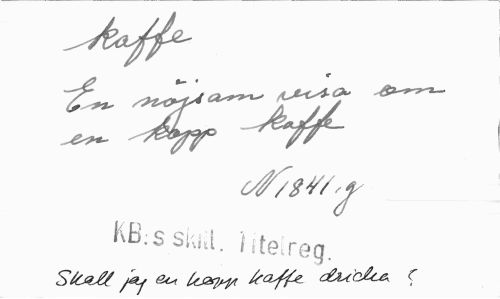 kaffe
En nöjsam visa om
en kopp kaffe
N 1841.g
KB:s skill. Titelreg.
Skall jag en kopp kaffe dricka ?